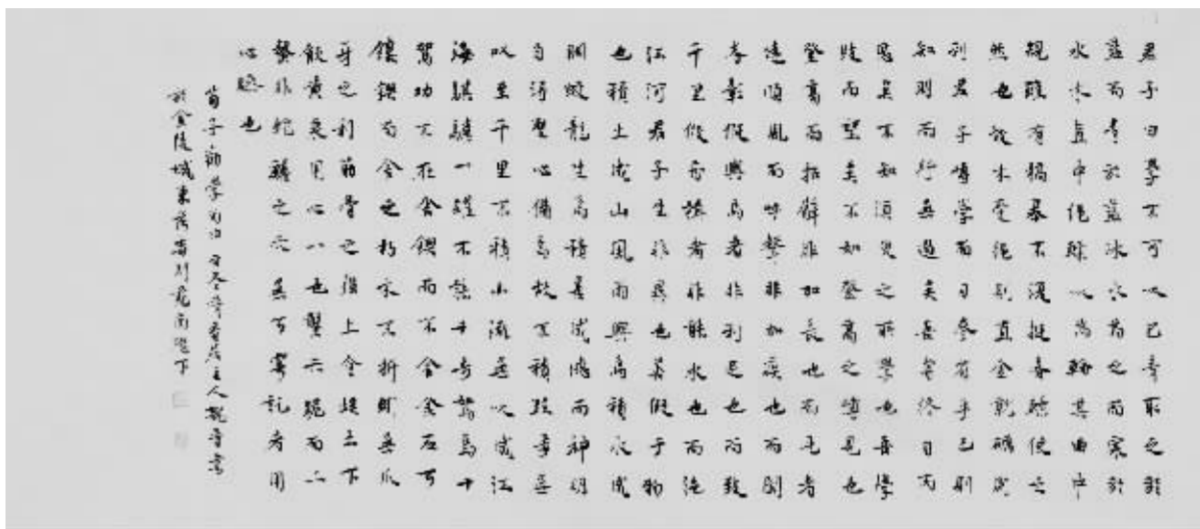 君子曰學不可以已青取之於
藍而青於藍冰水為之而寒於
水木直中繩輮以為輪其曲中
規雖有槁暴不復挺者輮使之
然也故木受繩則直金就礪則
利君子博學而日參省乎己則
知明而行無過矣吾嘗終日而
思矣不如須臾之所學也吾嘗
跂而望矣不如登高之博見也
登高而招臂非加長也而見者
遠順風而呼聲非加疾也而聞
者彰假輿馬者非利足也而致
千里假舟楫者非能水也而絕
江河君子生非異也善假于物
也積土成山風雨興焉積水成
淵蛟龍生焉積善成德而神明
自得聖心備焉故不積跬步無
以至千里不積小流無以成江
海騏驥一躍不能十步駑馬十
駕功不在舍鍥而不舍金石可
鏤鍥而舍之朽木不折蚓無爪
牙之利筋骨之強上食埃土下
飲黃泉用心一也蟹六跪而二
螯非蛇鱔之穴無可寄託者用
心躁也
荀子勸學 主人
於金陵城東